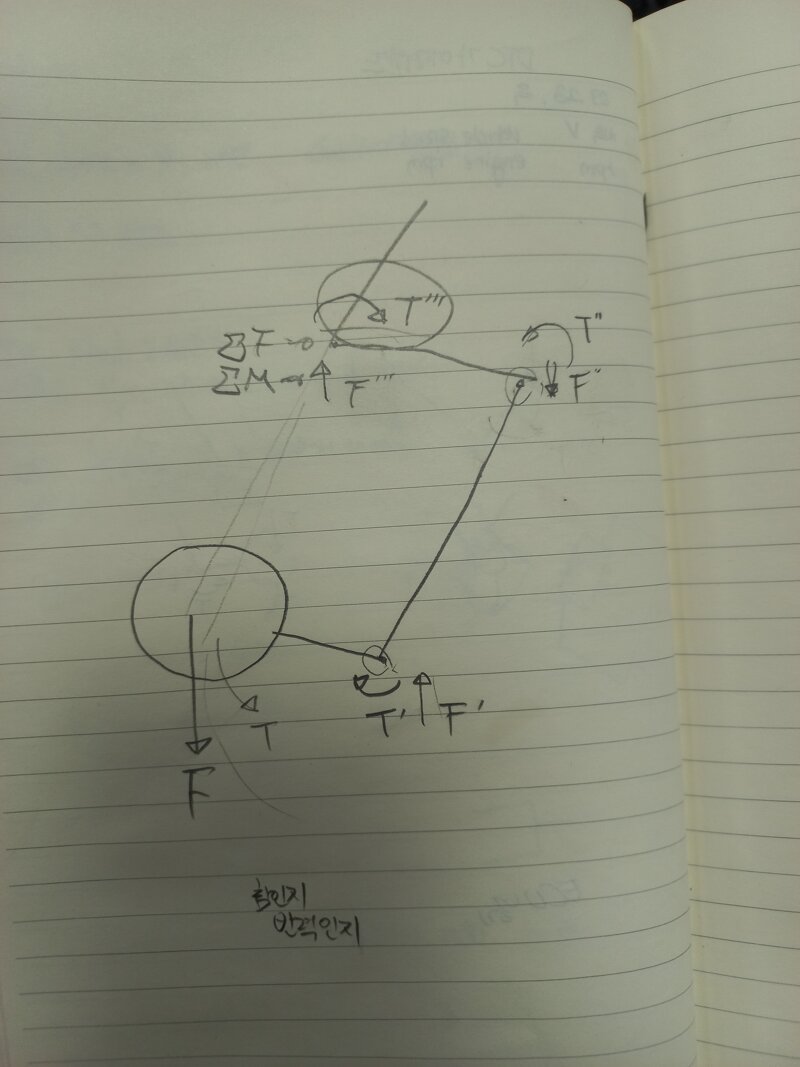 T'''
ΣF=0
ΣM=0
F'''
T''
F''
T
T'
F'
F
힘인지
반력인지